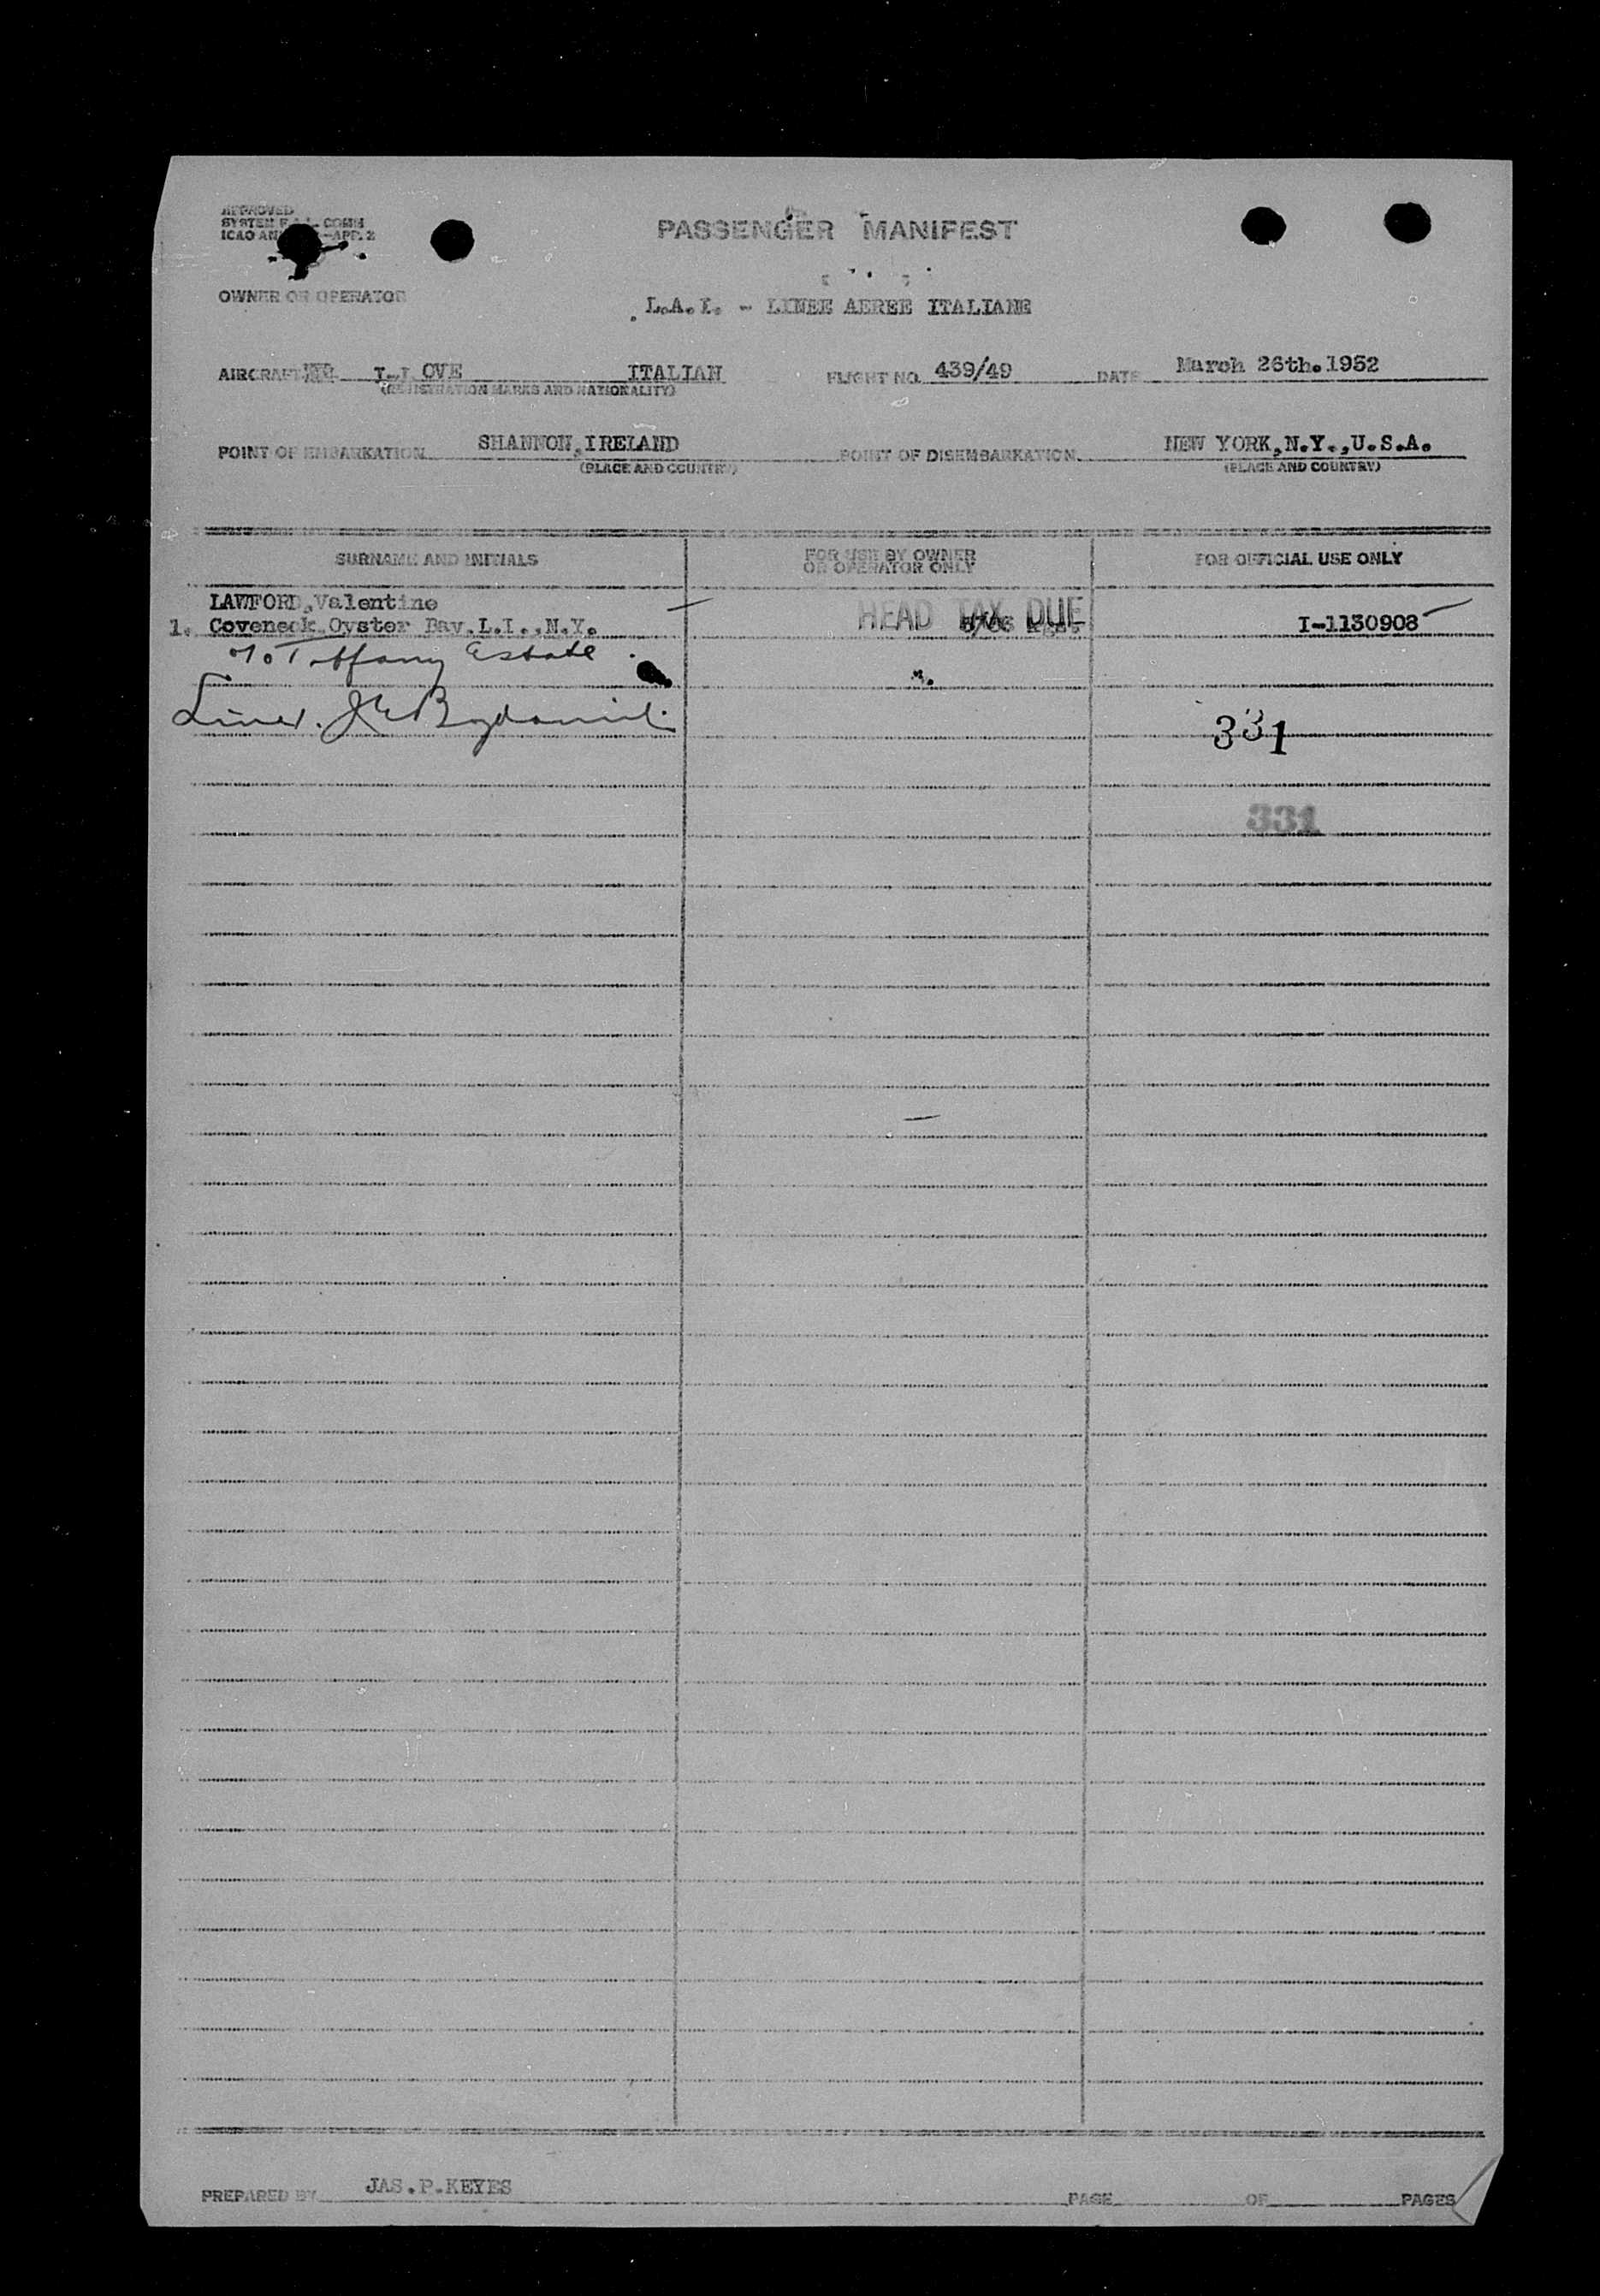 APPROVED
SYSTEM F.A.L. COMM
ICAO AN —APP. 2
PASSENGER MANIFEST
OWNER OR OPERATOR
L.A.I. - LINEE AEREE ITALIANE
AIRCRAFT I-LOVE ITALIAN FLIGHT NO. 439/49 DATE March 26th.1952
(REGISTRATION MARKS AND NATIONALITY)
POINT OF EMBARKATION SHANNON,IRELAND POINT OF DISEMBARKATION NEW YORK,N.Y.,U.S.A.
(PLACE AND COUNTRY) (PLACE AND COUNTRY)
SURNAME AND INITIALS FOR USE BY OWNER OR OPERATOR ONLY FOR OFFICIAL USE ONLY
LAWFORD,Valentine HEAD TAX DUE
1. Coveneck.Oyster Bay.L.I.,N.Y. I-1130908
c/o Tiffany Estate
331
331
PREPARED BY JAS.P.KEYES PAGE OF PAGES